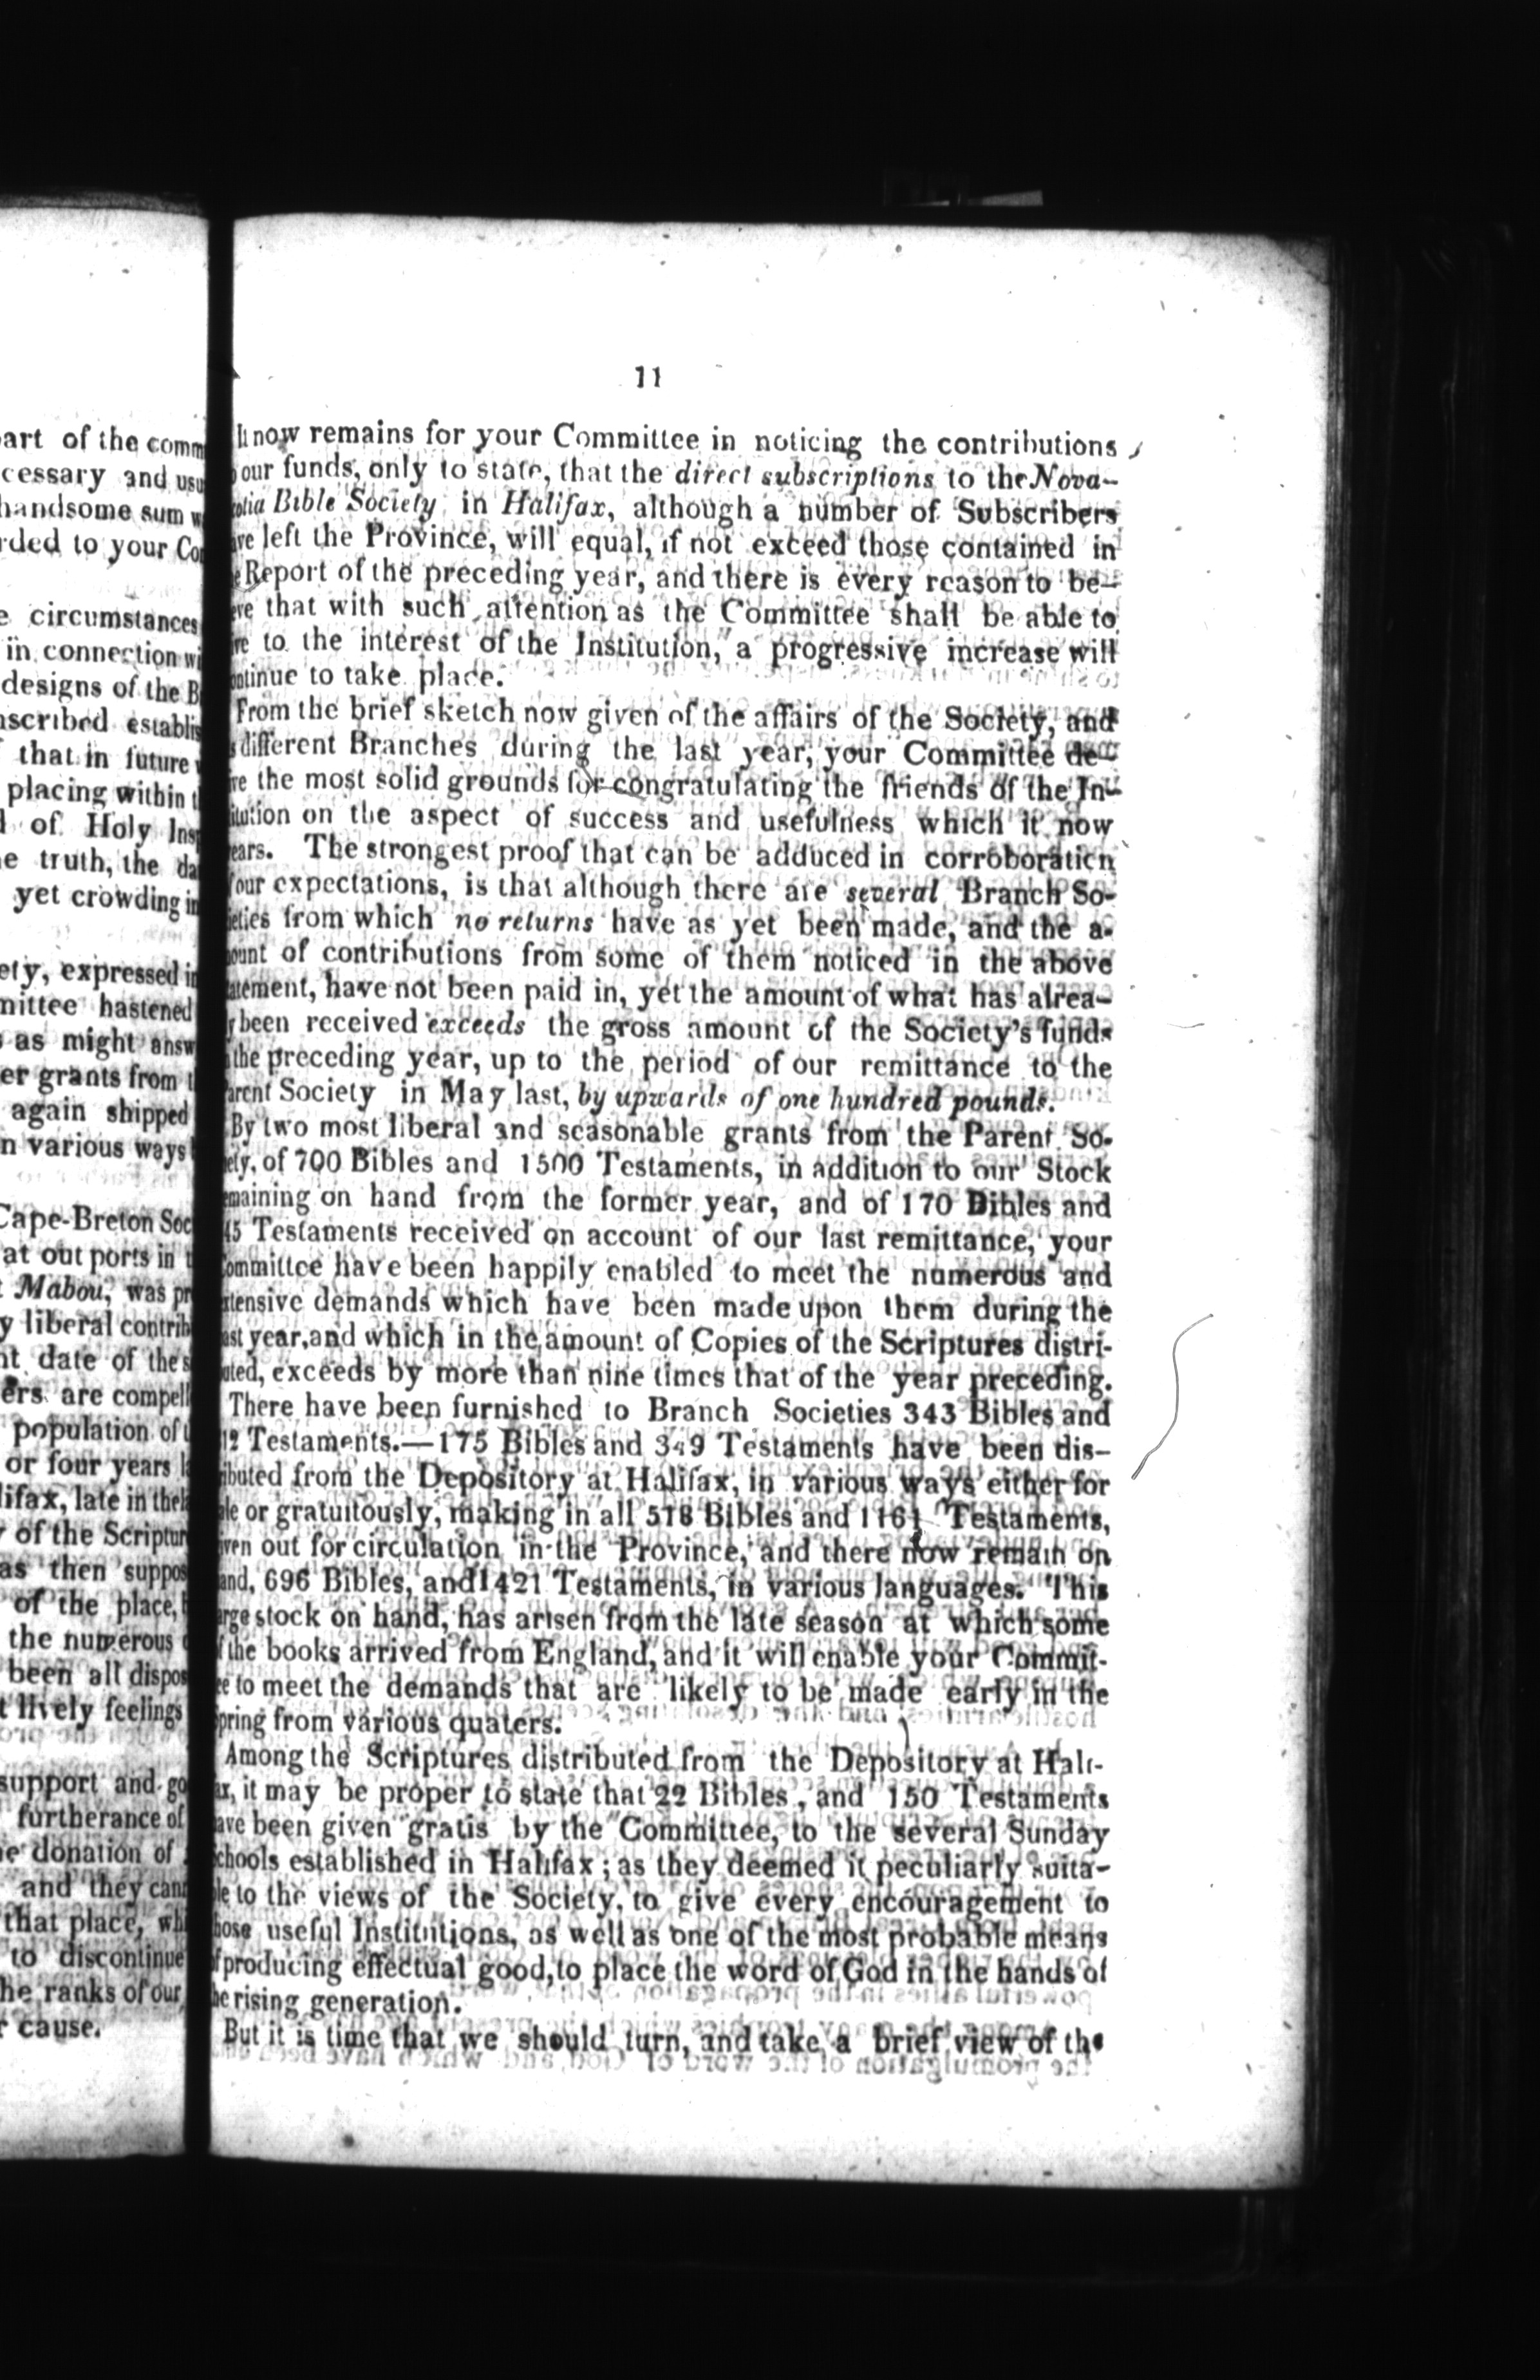 art of the comm
cessary and usu
handsome sum w
rded to your Co
e circumstances
in connection wi
designs of the B
scribed establis
that in future
placing within t
of Holy Ins
e truth, the da
yet crowding in
ety, expressed in
mittee hastened
as might answ
er grants from t
again shipped
n various ways
Cape-Breton Soc
at out ports in t
Mabou, was pr
y liberal contrib
nt date of the s
ers are compell
population of t
or four years l
lifax, late in the
of the Scriptur
as then suppos
of the place,
the numerous
been all dispos
t lively feelings
support and go
furtherance of
e donation of
and they can
that place, wh
to discontinue
he ranks of our
r cause.
11
It now remains for your Committee in noticing the contributions
our funds, only to state, that the direct subscriptions to the Nova-
otia Bible Society in Halifax, although a number of Subscribers
ave left the Province, will equal, if not exceed those contained in
e Report of the preceding year, and there is every reason to be-
eve that with such attention as the Committee shall be able to
ve to the interest of the Institution, a progressive increase will
ontinue to take place.
From the brief sketch now given of the affairs of the Society, and
s different Branches during the last year, your Committee de-
ve the most solid grounds for congratulating the friends of the In-
itution on the aspect of success and usefulness which it now
ears. The strongest proof that can be adduced in corroboration
f our expectations, is that although there are several Branch So-
ieties from which no returns have as yet been made, and the a-
ount of contributions from some of them noticed in the above
atement, have not been paid in, yet the amount of what has alrea-
y been received exceeds the gross amount of the Society's funds
the preceding year, up to the period of our remittance to the
arent Society in May last, by upwards of one hundred pounds.
By two most liberal and seasonable grants from the Parent So-
iety, of 700 Bibles and 1500 Testaments, in addition to our Stock
emaining on hand from the former year, and of 170 Bibles and
45 Testaments received on account of our last remittance, your
ommittee have been happily enabled to meet the numerous and
xtensive demands which have been made upon them during the
ast year, and which in the amount of Copies of the Scriptures distri-
uted, exceeds by more than nine times that of the year preceding.
There have been furnished to Branch Societies 343 Bibles and
12 Testaments.—175 Bibles and 349 Testaments have been dis-
ributed from the Depository at Halifax, in various ways either for
ale or gratuitously, making in all 518 Bibles and 1161 Testaments,
iven out for circulation in the Province, and there now remain on
and, 696 Bibles, and 1421 Testaments, in various languages. This
arge stock on hand, has arisen from the late season at which some
f the books arrived from England, and it will enable your Commit-
ee to meet the demands that are likely to be made early in the
pring from various quaters.
Among the Scriptures distributed from the Depository at Hali-
ax, it may be proper to state that 22 Bibles, and 150 Testaments
ave been given gratis by the Committee, to the several Sunday
chools established in Halifax; as they deemed it peculiarly suita-
le to the views of the Society, to give every encouragement to
hose useful Institutions, as well as one of the most probable means
f producing effectual good, to place the word of God in the hands of
he rising generation.
But it is time that we should turn, and take a brief view of the